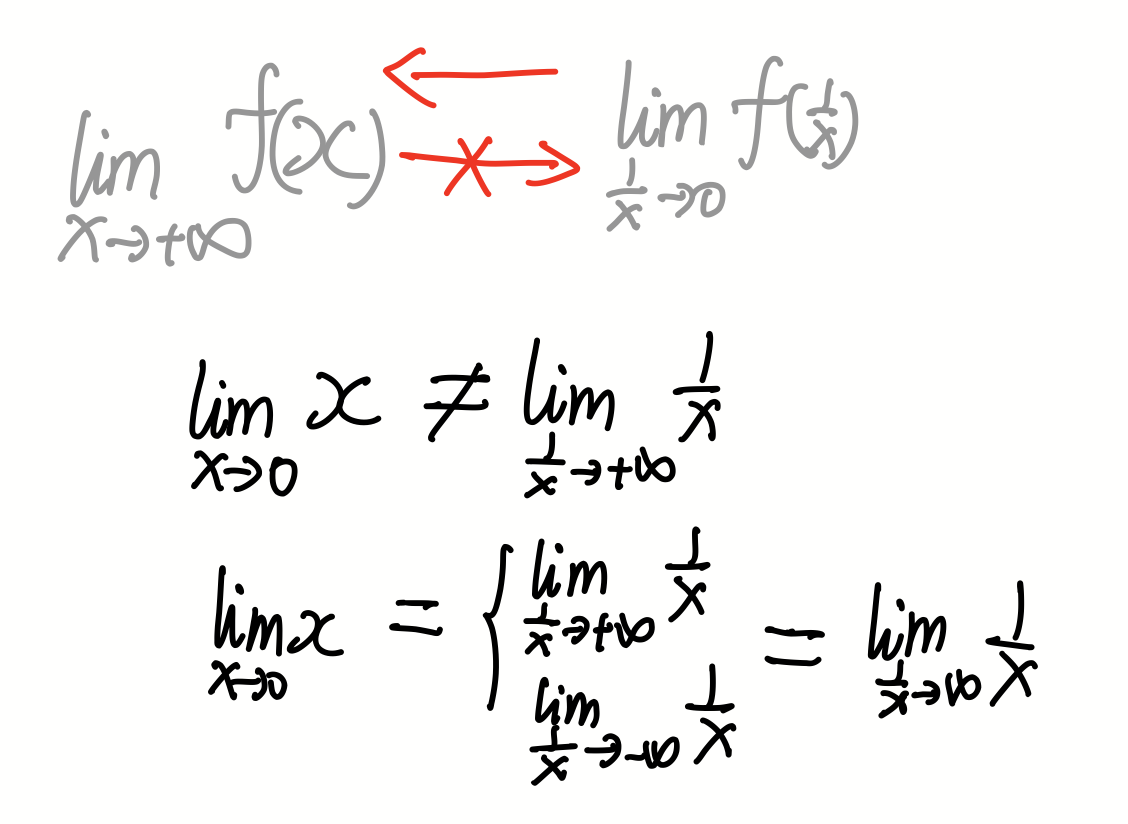 lim x→+∞ f(x) ← ↛ lim 1/x→0 f(1/x)
lim x→0 x ≠ lim 1/x→+∞ 1/x
lim x→0 x = { lim 1/x→+∞ 1/x
lim 1/x→-∞ 1/x = lim 1/x→∞ 1/x